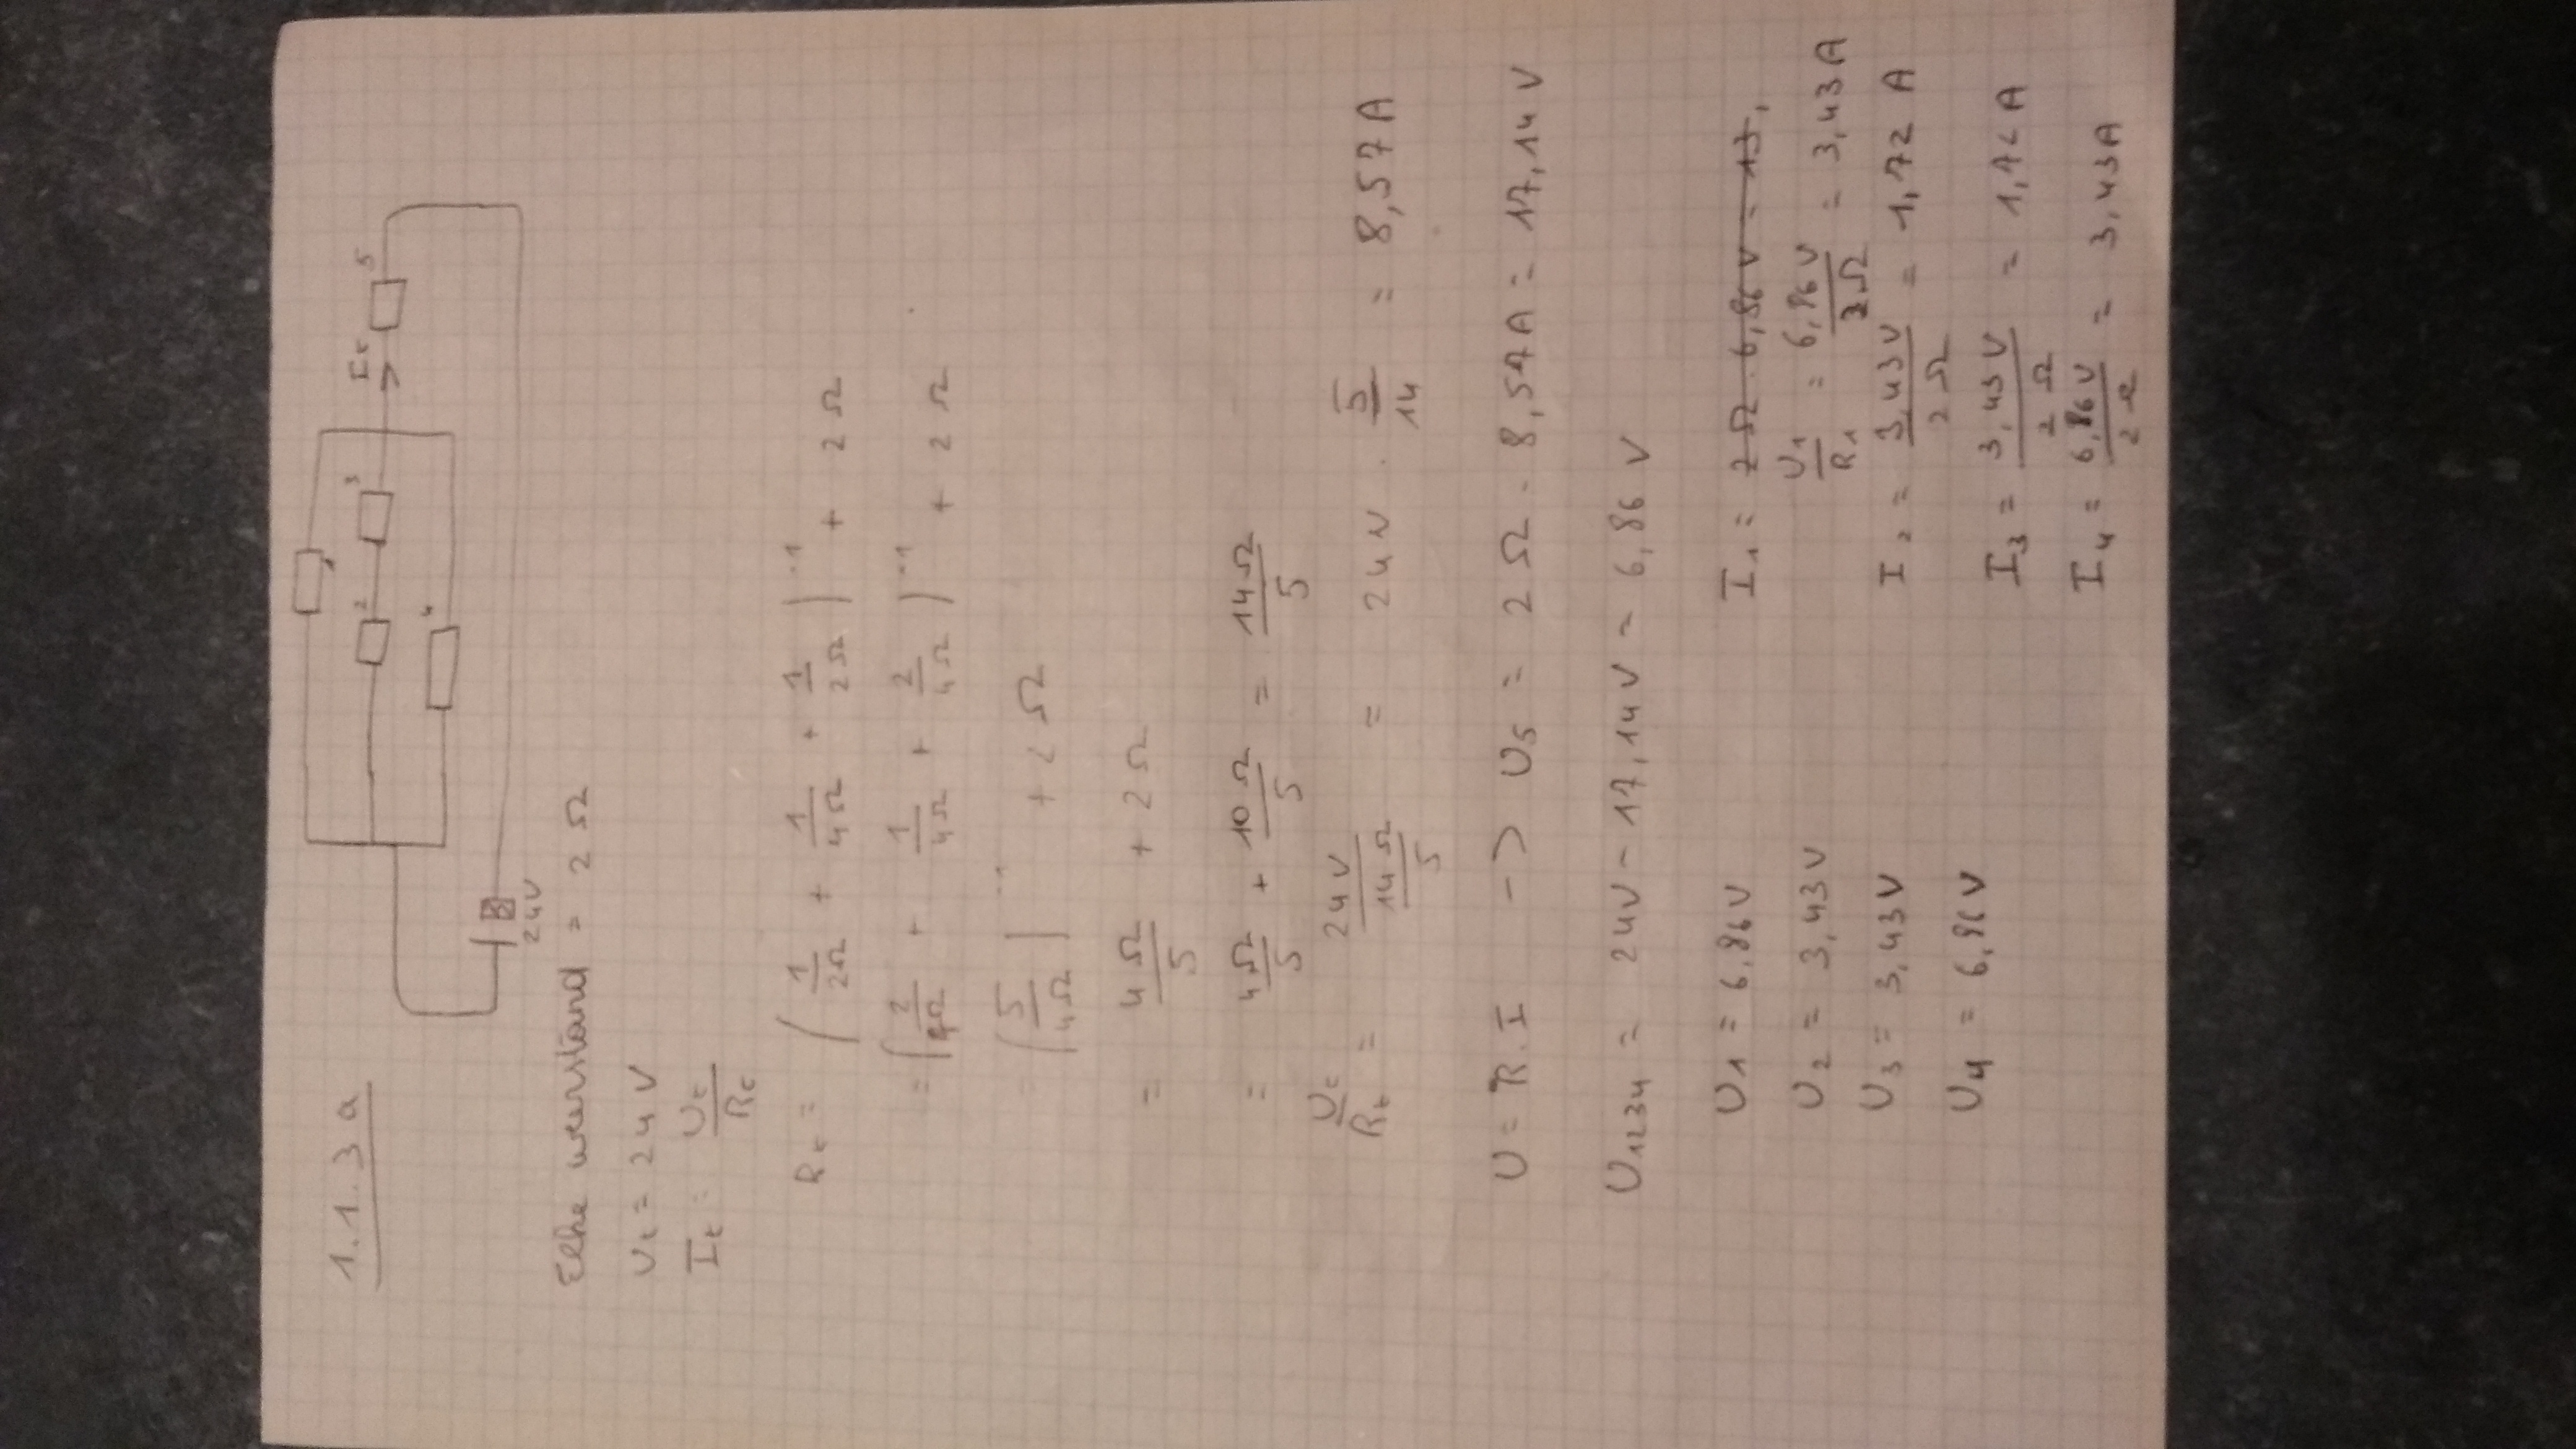 1.1.3 a
1
2 3 It 5
4
24V
Elke weerstand = 2 Ω
Ut = 24 V
It = Ut / Rt
Rt = ( 1/2Ω + 1/4Ω + 1/2Ω )^-1 + 2 Ω
= ( 2/4Ω + 1/4Ω + 2/4Ω )^-1 + 2 Ω
= ( 5/4Ω )^-1 + 2 Ω
= 4Ω/5 + 2Ω
= 4Ω/5 + 10Ω/5 = 14Ω/5
Ut/Rt = 24V / (14Ω/5) = 24V . 5/14 = 8,57A
U = R.I -> U5 = 2Ω . 8,57A = 17,14V
U1234 = 24V - 17,14V = 6,86 V
U1 = 6,86V I1 = 2Ω . 6,86V = 13,
U1/R1 = 6,86V/2Ω = 3,43A
U2 = 3,43V
U3 = 3,43V I2 = 3,43V/2Ω = 1,72 A
U4 = 6,86V
I3 = 3,43V/2Ω = 1,72 A
I4 = 6,86V/2Ω = 3,43A